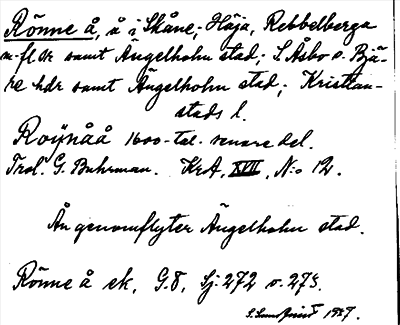 Rönne å, å i Skåne; Höja, Rebbelberga
m. fl. sr samt Ängelholm stad; S. Åsbo o. Bjä-
re hdr samt Ängelholm stad; Kristian-
stads l.
Roÿnåå 1600-tal. senare del.
Trol. G. Buhrman. KrA, XVII, N:o 12.
Ån genomflyter Ängelholm stad.
Rönne å ek, G.8, Sj. 272 o. 273.
1927.